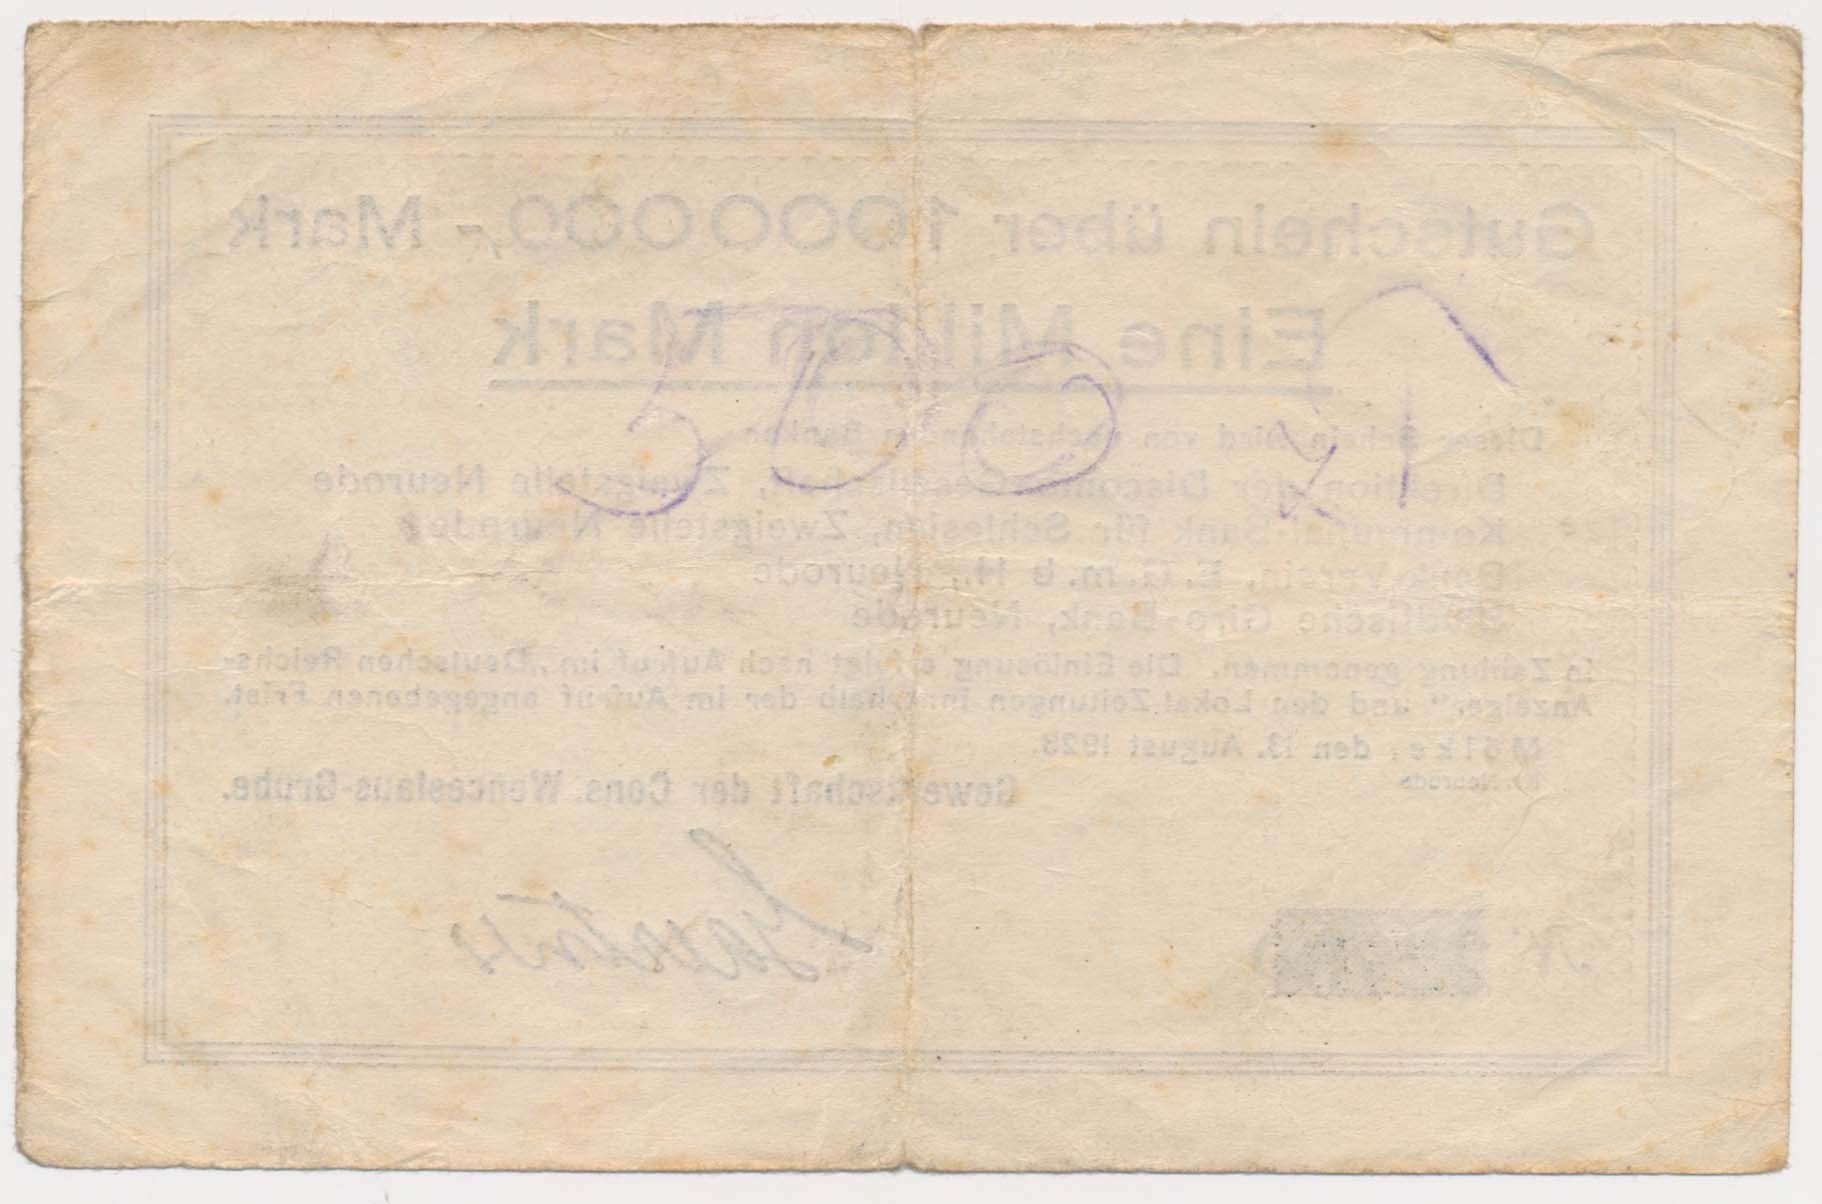 Gutschein über 1000000,- Mark
Eine Million Mark
500 zł
Dieser Schein wird von nachstehenden Banken
Direktion der Disconto-Gesellschaft, Zweigstelle Neurode
Kommunal-Bank für Schlesien, Zweigstelle Neurode
Bank-Verein, E. G. m. b H., Neurode
Städtische Giro-Bank, Neurode
in Zahlung genommen. Die Einlösung erfolgt nach Aufruf im „Deutschen Reichs-
Anzeiger“ und den Lokal-Zeitungen innerhalb der im Aufruf angegebenen Frist.
Mölke, den 13. August 1923.
Kr. Neurode
Gewerkschaft der Cons. Wenceslaus-Grube.